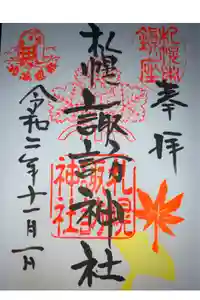 奉拝
札幌
諏訪神社
令和二年十一月一日
札幌
諏訪
神社